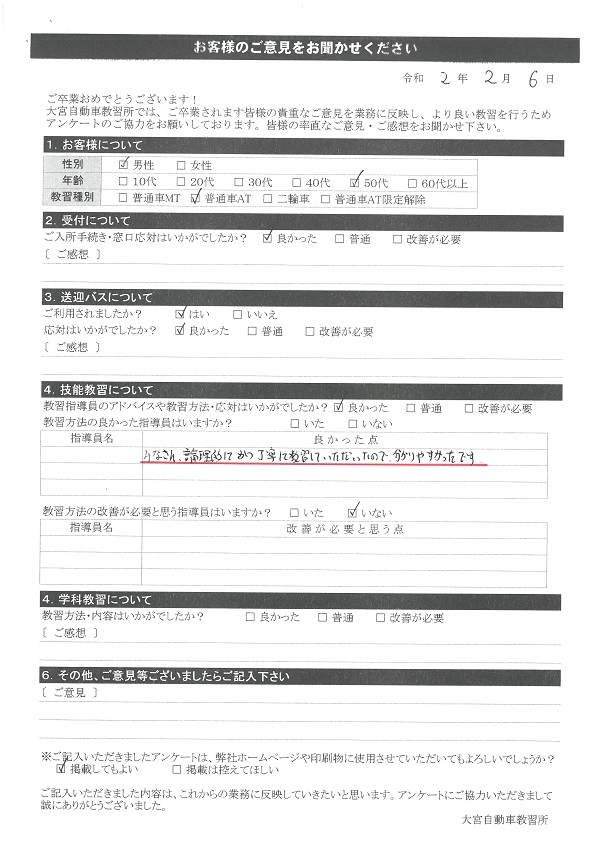 お客様のご意見をお聞かせください
令和 2 年 2 月 6 日
ご卒業おめでとうございます!
大宮自動車教習所では、ご卒業されます皆様の貴重なご意見を業務に反映し、より良い教習を行うため
アンケートのご協力をお願いしております。皆様の率直なご意見・ご感想をお聞かせ下さい。
1. お客様について
性別 ☑男性 □女性
年齢 □10代 □20代 □30代 □40代 ☑50代 □60代以上
教習種別 □普通車MT ☑普通車AT □二輪車 □普通車AT限定解除
2. 受付について
ご入所手続き・窓口応対はいかがでしたか? ☑良かった □普通 □改善が必要
〔 ご感想 〕
3. 送迎バスについて
ご利用されましたか? ☑はい □いいえ
応対はいかがでしたか? ☑良かった □普通 □改善が必要
〔 ご感想 〕
4. 技能教習について
教習指導員のアドバイスや教習方法・応対はいかがでしたか? ☑良かった □普通 □改善が必要
教習方法の良かった指導員はいますか? □いた □いない
指導員名 良かった点
みなさん、論理的にかつ丁寧に教習していただいたので、分かりやすかったです
教習方法の改善が必要と思う指導員はいますか? □いた ☑いない
指導員名 改善が必要と思う点
4. 学科教習について
教習方法・内容はいかがでしたか? □良かった □普通 □改善が必要
〔 ご感想 〕
6. その他、ご意見等ございましたらご記入下さい
〔 ご意見 〕
※ご記入いただきましたアンケートは、弊社ホームページや印刷物に使用させていただいてもよろしいでしょうか?
☑掲載してもよい □掲載は控えてほしい
ご記入いただきました内容は、これからの業務に反映していきたいと思います。アンケートにご協力いただきまして
誠にありがとうございました。
大宮自動車教習所